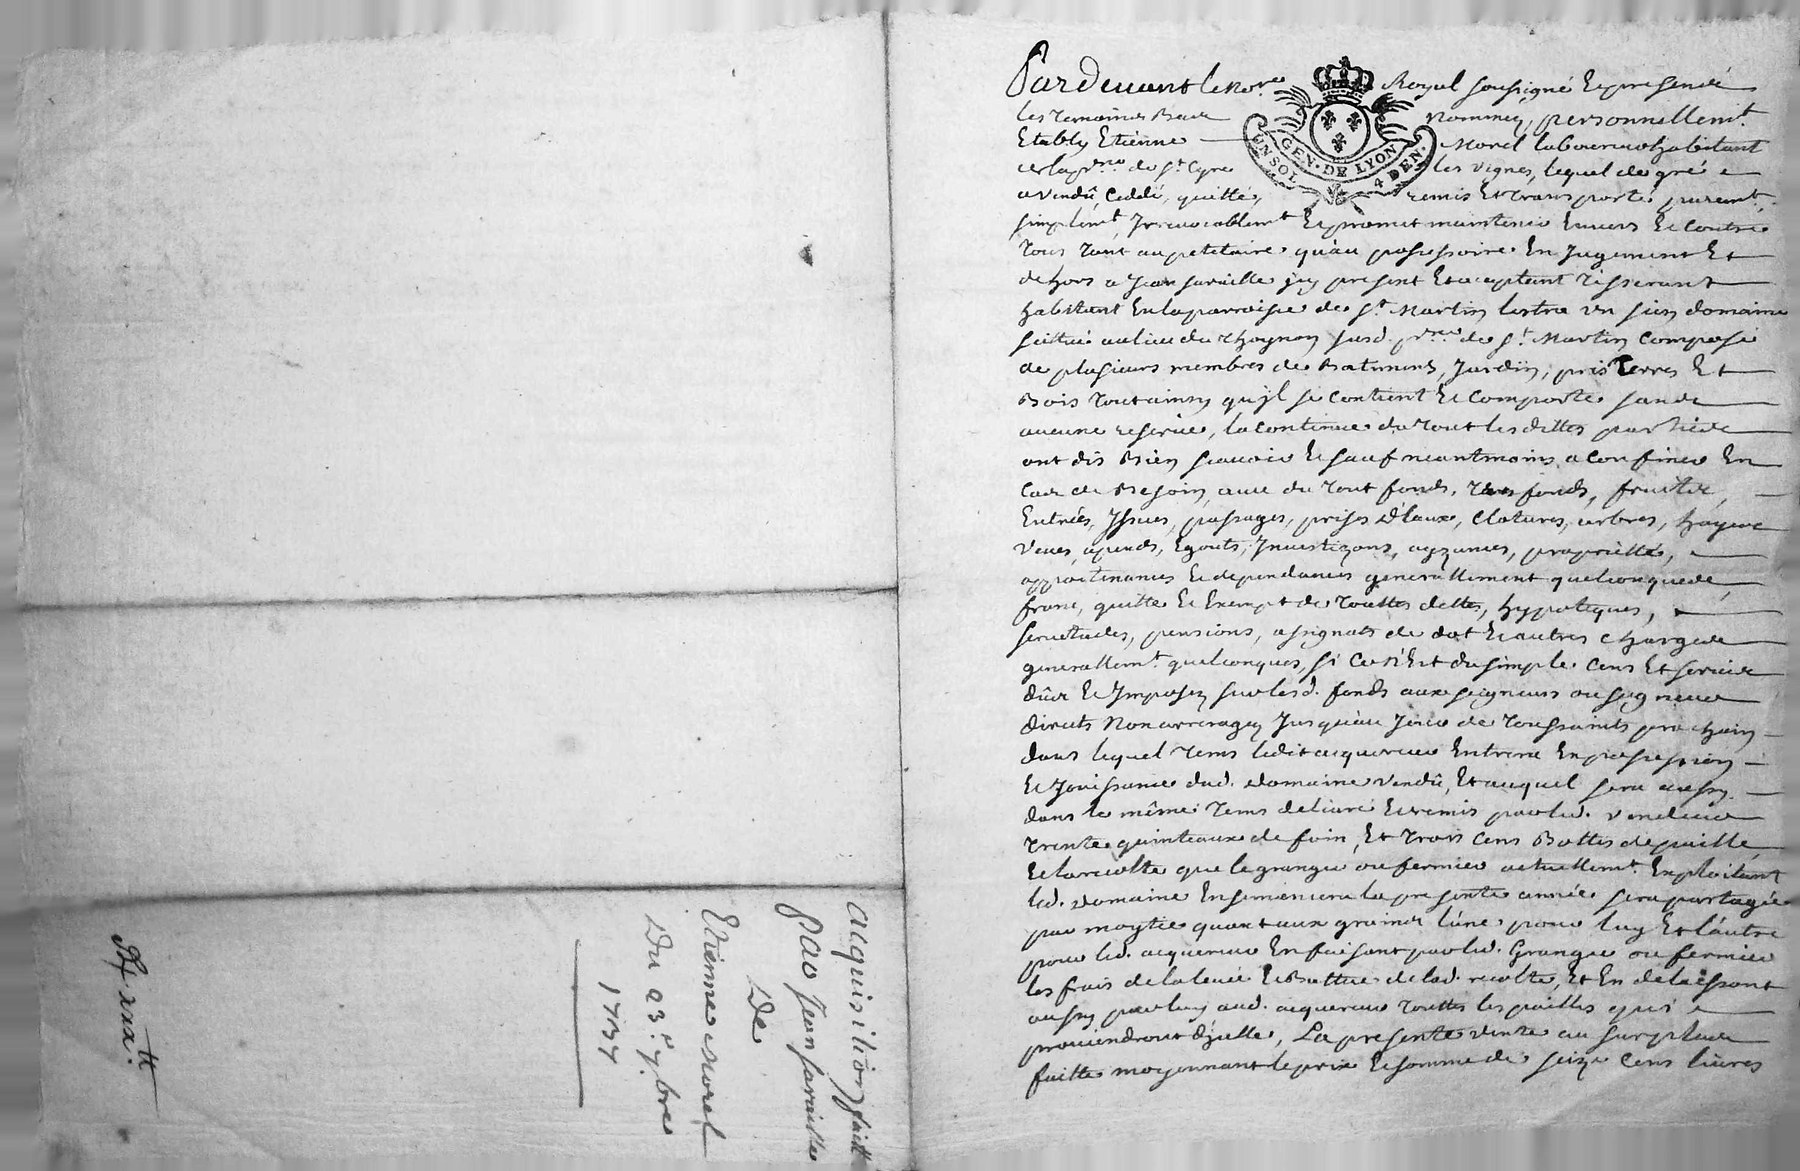 acquisition faitt
par Jean faraille
De
Etienne Morel
Du 23e 7bre
1737
Pardevant le Nore Royal sousigné Et presents
les temoins Bas nommez, personnellemt
Etably Etienne Morel laboureur habitant
de St Cyre les vignes, lequel de gré
a vendû, Ceddé, quitté, remis Et transporté purement,
simplemt, Irrevocablemt Et promet maintenir Envers Et Contre
tous tant au petitoire qu'au possessoire En Jugement Et
dehors a Jean faraille icy present Et acceptant tisserant
habitant En la parroisse de St Martin lestra un sien domaine
scittué au lieu du susd. prsse de St Martin Composé
de plusieurs membres de Batiments, Jardin, prés terres Et
Bois tout ainsy qu'il se Contient Et Comporte sans
aucune reserve, la Continue du tout lesdittes parties
ont dis Bien scavoir Et sauf neantmoins a Confiner En
Cas de Besoin, avec du tout fonds, tresfonds, fruits,
Entrées, Issues, passages, prises d'Eaux, Clotures, arbres, hayes
Vues, apends, Egouts, Investizons, ayzances, proprietté,
appartenances Et dependances generallement quelconques,
franc, quitte Et Exempt de touttes dettes, hypoteques,
servitudes, pensions, assignats de dot Et autres charges
generallemt quelconques, si Ce n'Est du simple Cens Et service
dûs Et Imposez sur lesd. fonds aux seigneurs ou seigneur
directs Non arreragez Jusqu'au Jour de toussaints prochain
dans lequel tems ledit acquereur Entrera En possession
Et Jouissance dud. domaine vendû, Et auquel sera aussy
dans le même tems delivré Et remis par led. vendeur
trente quinteaux de foin, Et trois Cens Bottes de paille,
Et la recolte que le granger ou fermier actuellemt Exploitant
led. domaine Ensemencera la presente année sera partagée
par moytié quant aux graines l'une pour luy Et l'autre
pour led. acquereur En faisant par led. Granger ou fermier
les frais de la levée Et Battue de lad. recolte, Et En delaissant
aussy par luy aud. acquereur touttes les pailles qui
proviendront d'jcelle, La presente vente au surplus
faitte moyennant le prix Et somme de seize Cens livres
GEN. DE LYON
UN SOL 4 DEN.